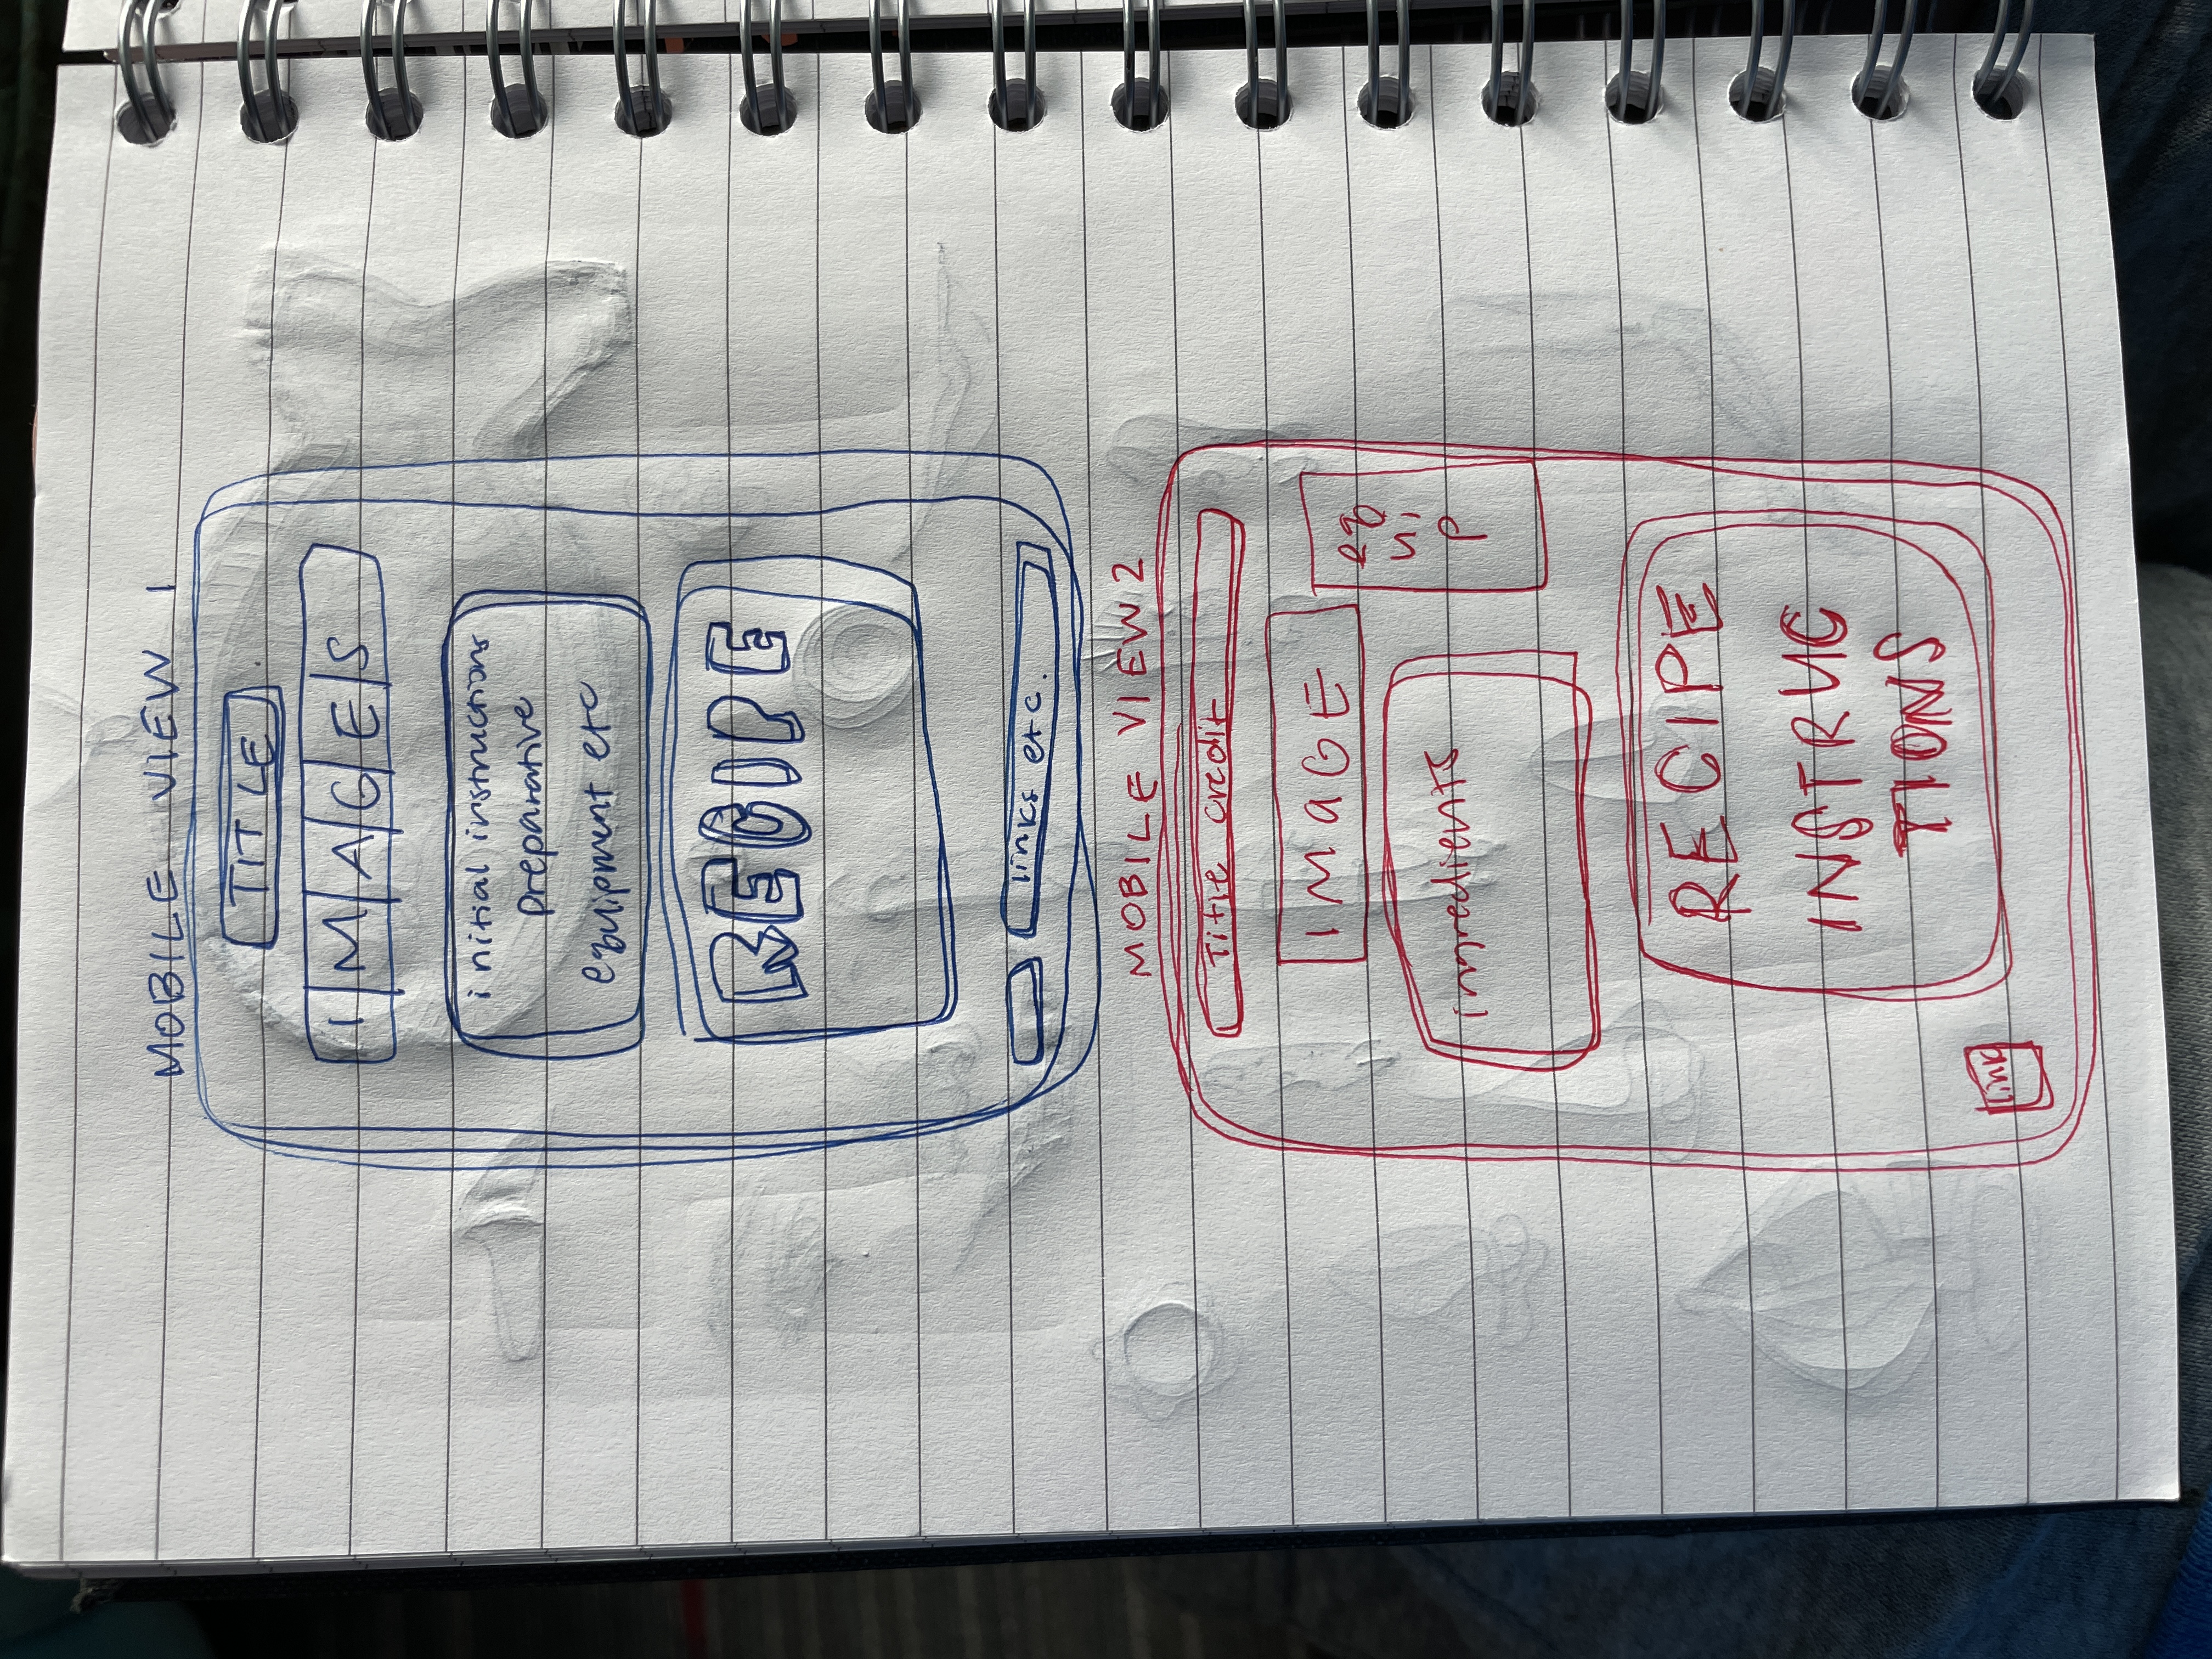 MOBILE VIEW 1
TITLE
IMAGES
initial instructions
preparative
equipment etc
RECIPE
links etc.
MOBILE VIEW 2
Title credit
IMAGE
eq
ui
p
ingredients
RECIPE
INSTRUC
TIONS
link